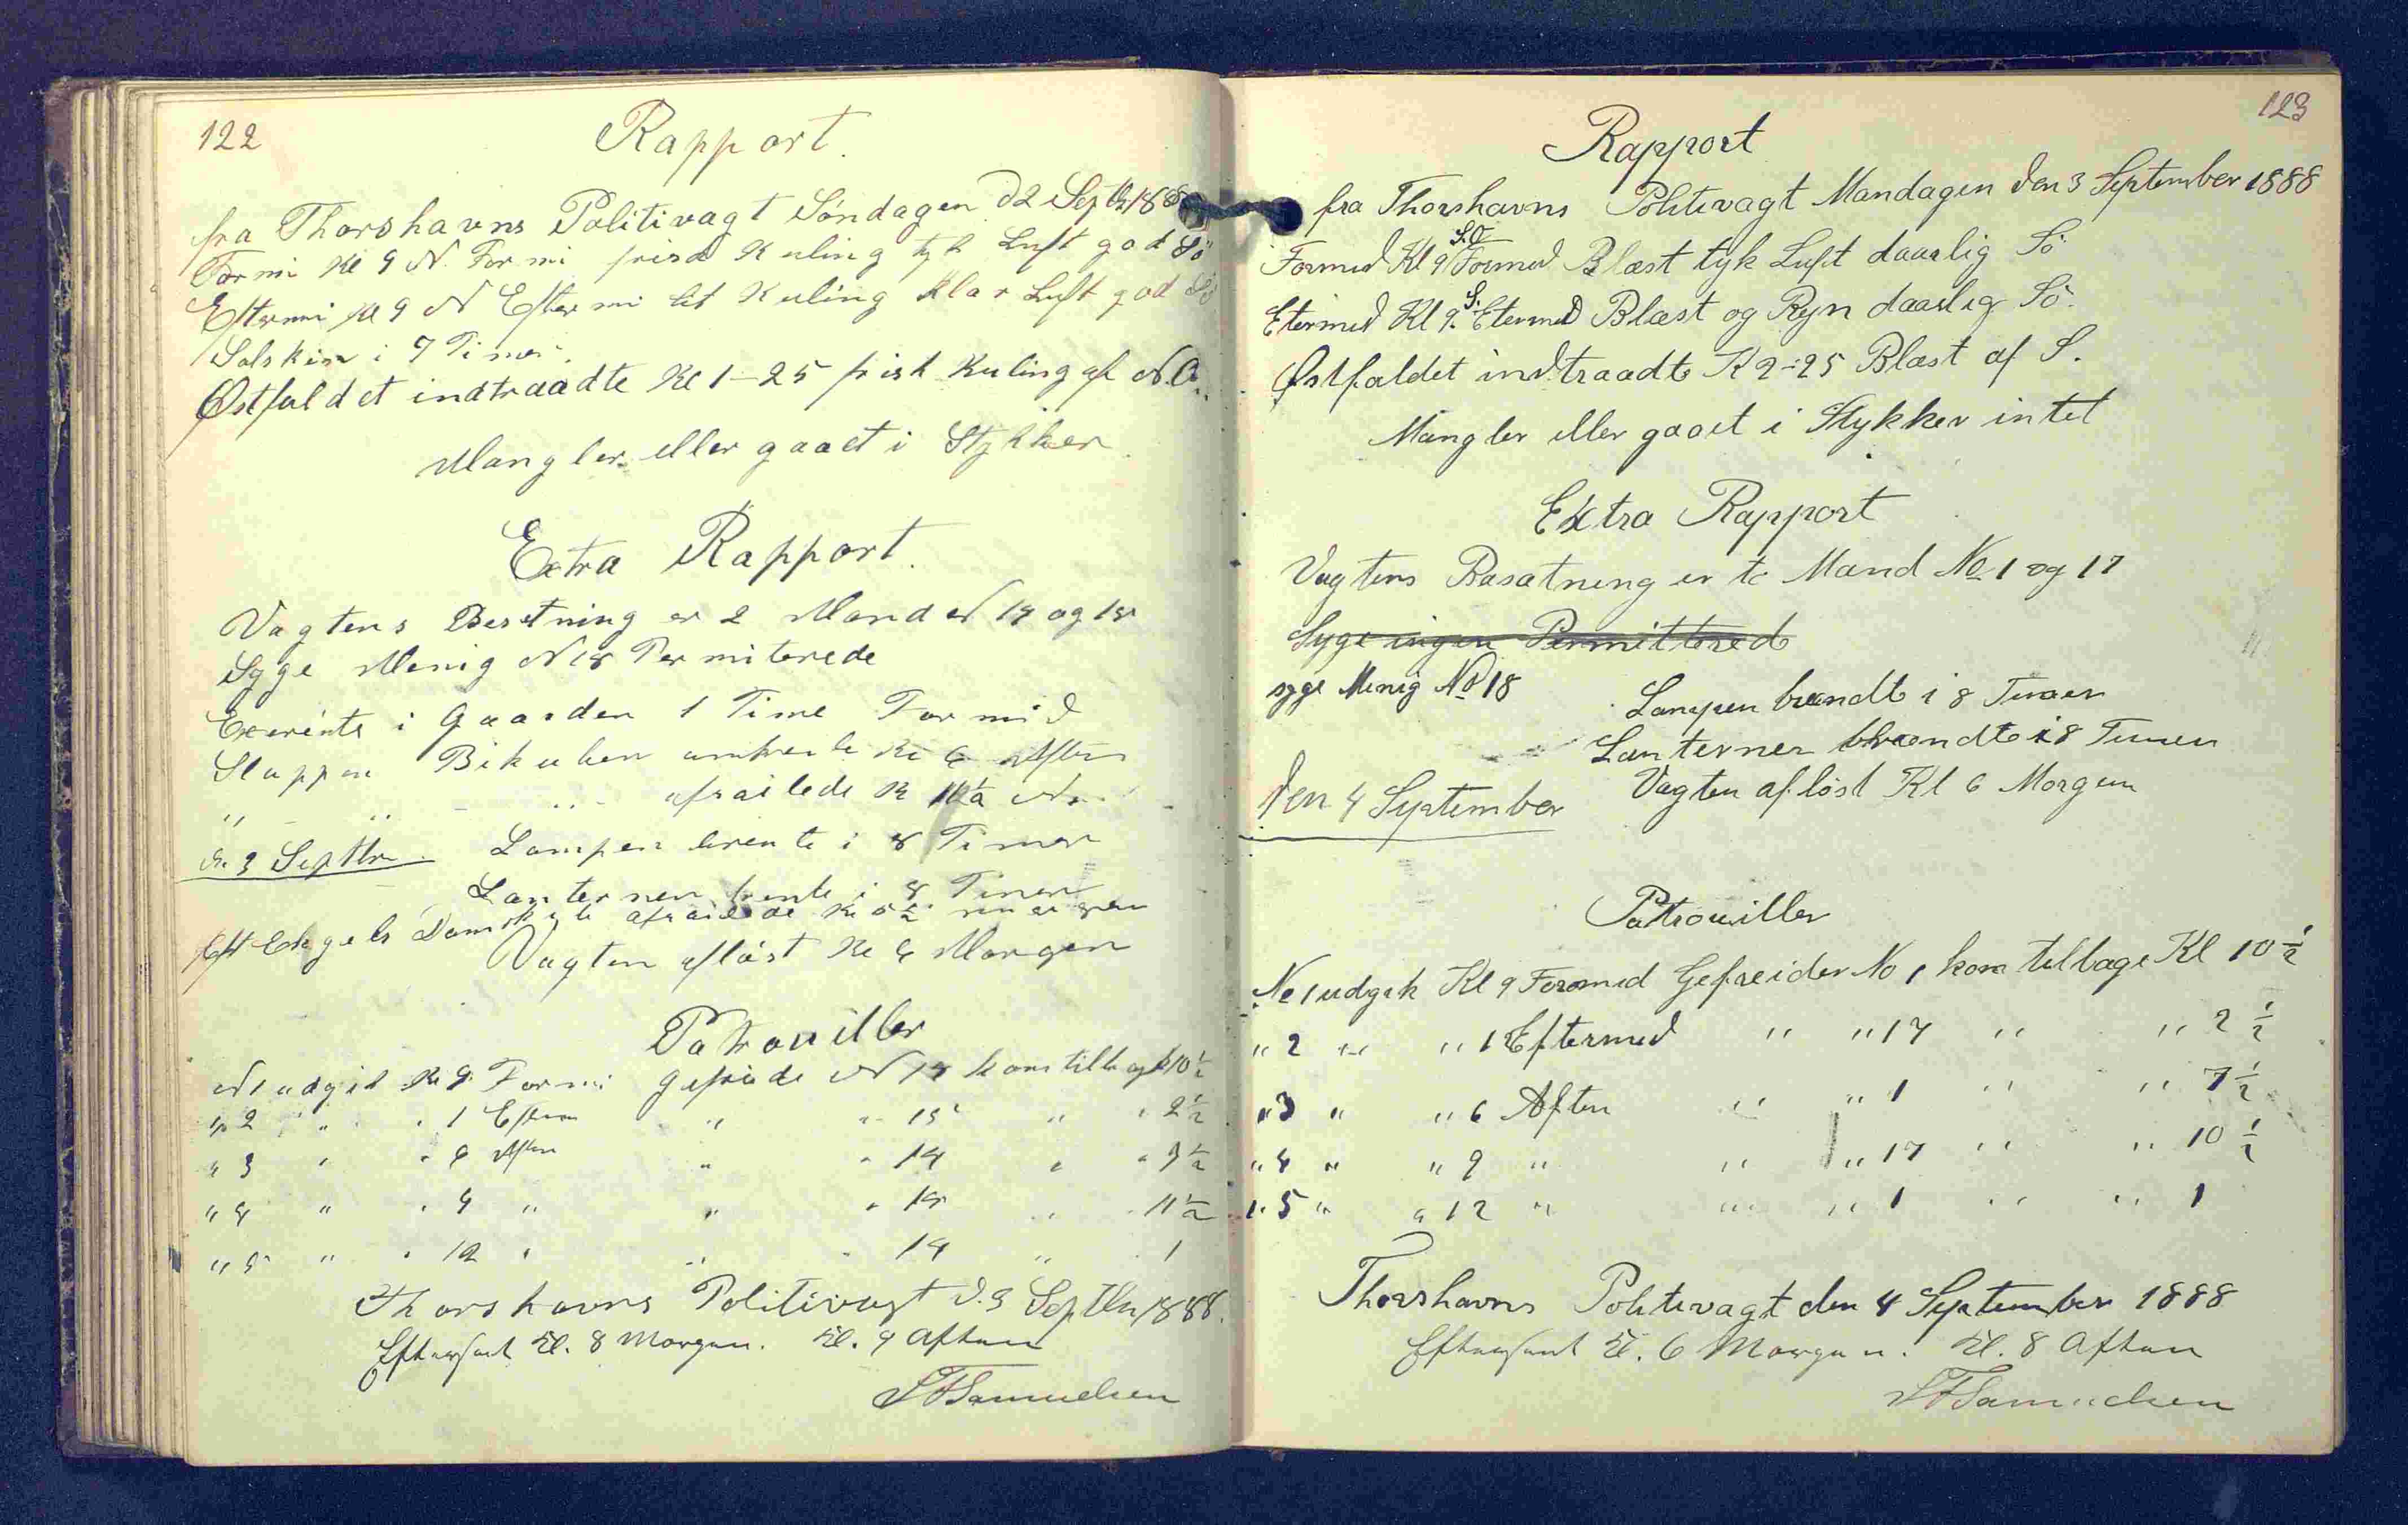 122
Rapport.
fra Thorshavns Politivagt Söndagen d 2 Septbr 188
Formi Kl 9 N. Formi frisk Kuling tyk Luft god Sö
Eftermi Kl 9 N Eftermi let Kuling Klar Luft god Sö
Solskin i 7 Timer.
Østfaldet indtraadte Kl 1-25 frisk Kuling af N.O.
Mangler eller gaaet i Stykker.
Extra Rapport.
Vagtens Besetning er 2 Mand N 14 og 15
Syge Menig N 18 Permiterede
i Gaarden 1 Time Formid
Sluppen Bikuben Kl 6 Aften
" " " afsailede Kl
d. 3 Septbr. Lampen brente i 8 Timer
Lanternen brente i 8 Timer
afsailede Kl
Vagten aflöst Kl 6 Morgen
Patrouiller
N 1 udgik Kl 9 Formi gefreide N 14 kom tilbage 10 1/2
" 2 " " 1 Efterm " " 15 " " 2 1/2
" 3 " " 6 Aften " " 14 " "
" 4 " " 9 " " " 15 " " 11 1/2
" 5 " " 12 " " " 14 " " 1
Thorshavns Politivagt d. 3 Septbr 1888.
Efterseet Kl. 8 Morgen. Kl. 9 Aften
Samuelsen
123
Rapport
fra Thorshavns Politivagt Mandagen den 3 September 1888
Formed Kl 9 S.O Formed Blæst tyk Luft daarlig Sö
Etermed Kl 9. S. Etermed Blæst og Rejn daarlig Sö.
Østfaldet indtraadte K 2-25 Blæst af S.
Mangler eller gaaet i Stykker intet
Extra Rapport
Vagtens Basatning er to Mand No 1 og 17
Syge ingen Permitterede
syge Menig No 18
Lampen brændte i 8 Timer
Lanternen brændte i 8 Timer
den 4 September Vagten aflöst Kl 6 Morgen
Patrouiller
No 1 udgik Kl 9 Foromed Gefreider No 1 kom tilbage Kl 10 1/2
" 2 " " 1 Eftermed " " 17 " " 2 1/2
" 3 " " 6 Aften " " 1 " " 7 1/2
" 4 " " 9 " " " 17 " " 10 1/2
" 5 " " 12 " " " 1 " " 1
Thorshavns Politivagt den 4 September 1888
Efterseet Kl. 6 Morgen. Kl. 8 Aften
Samuelsen